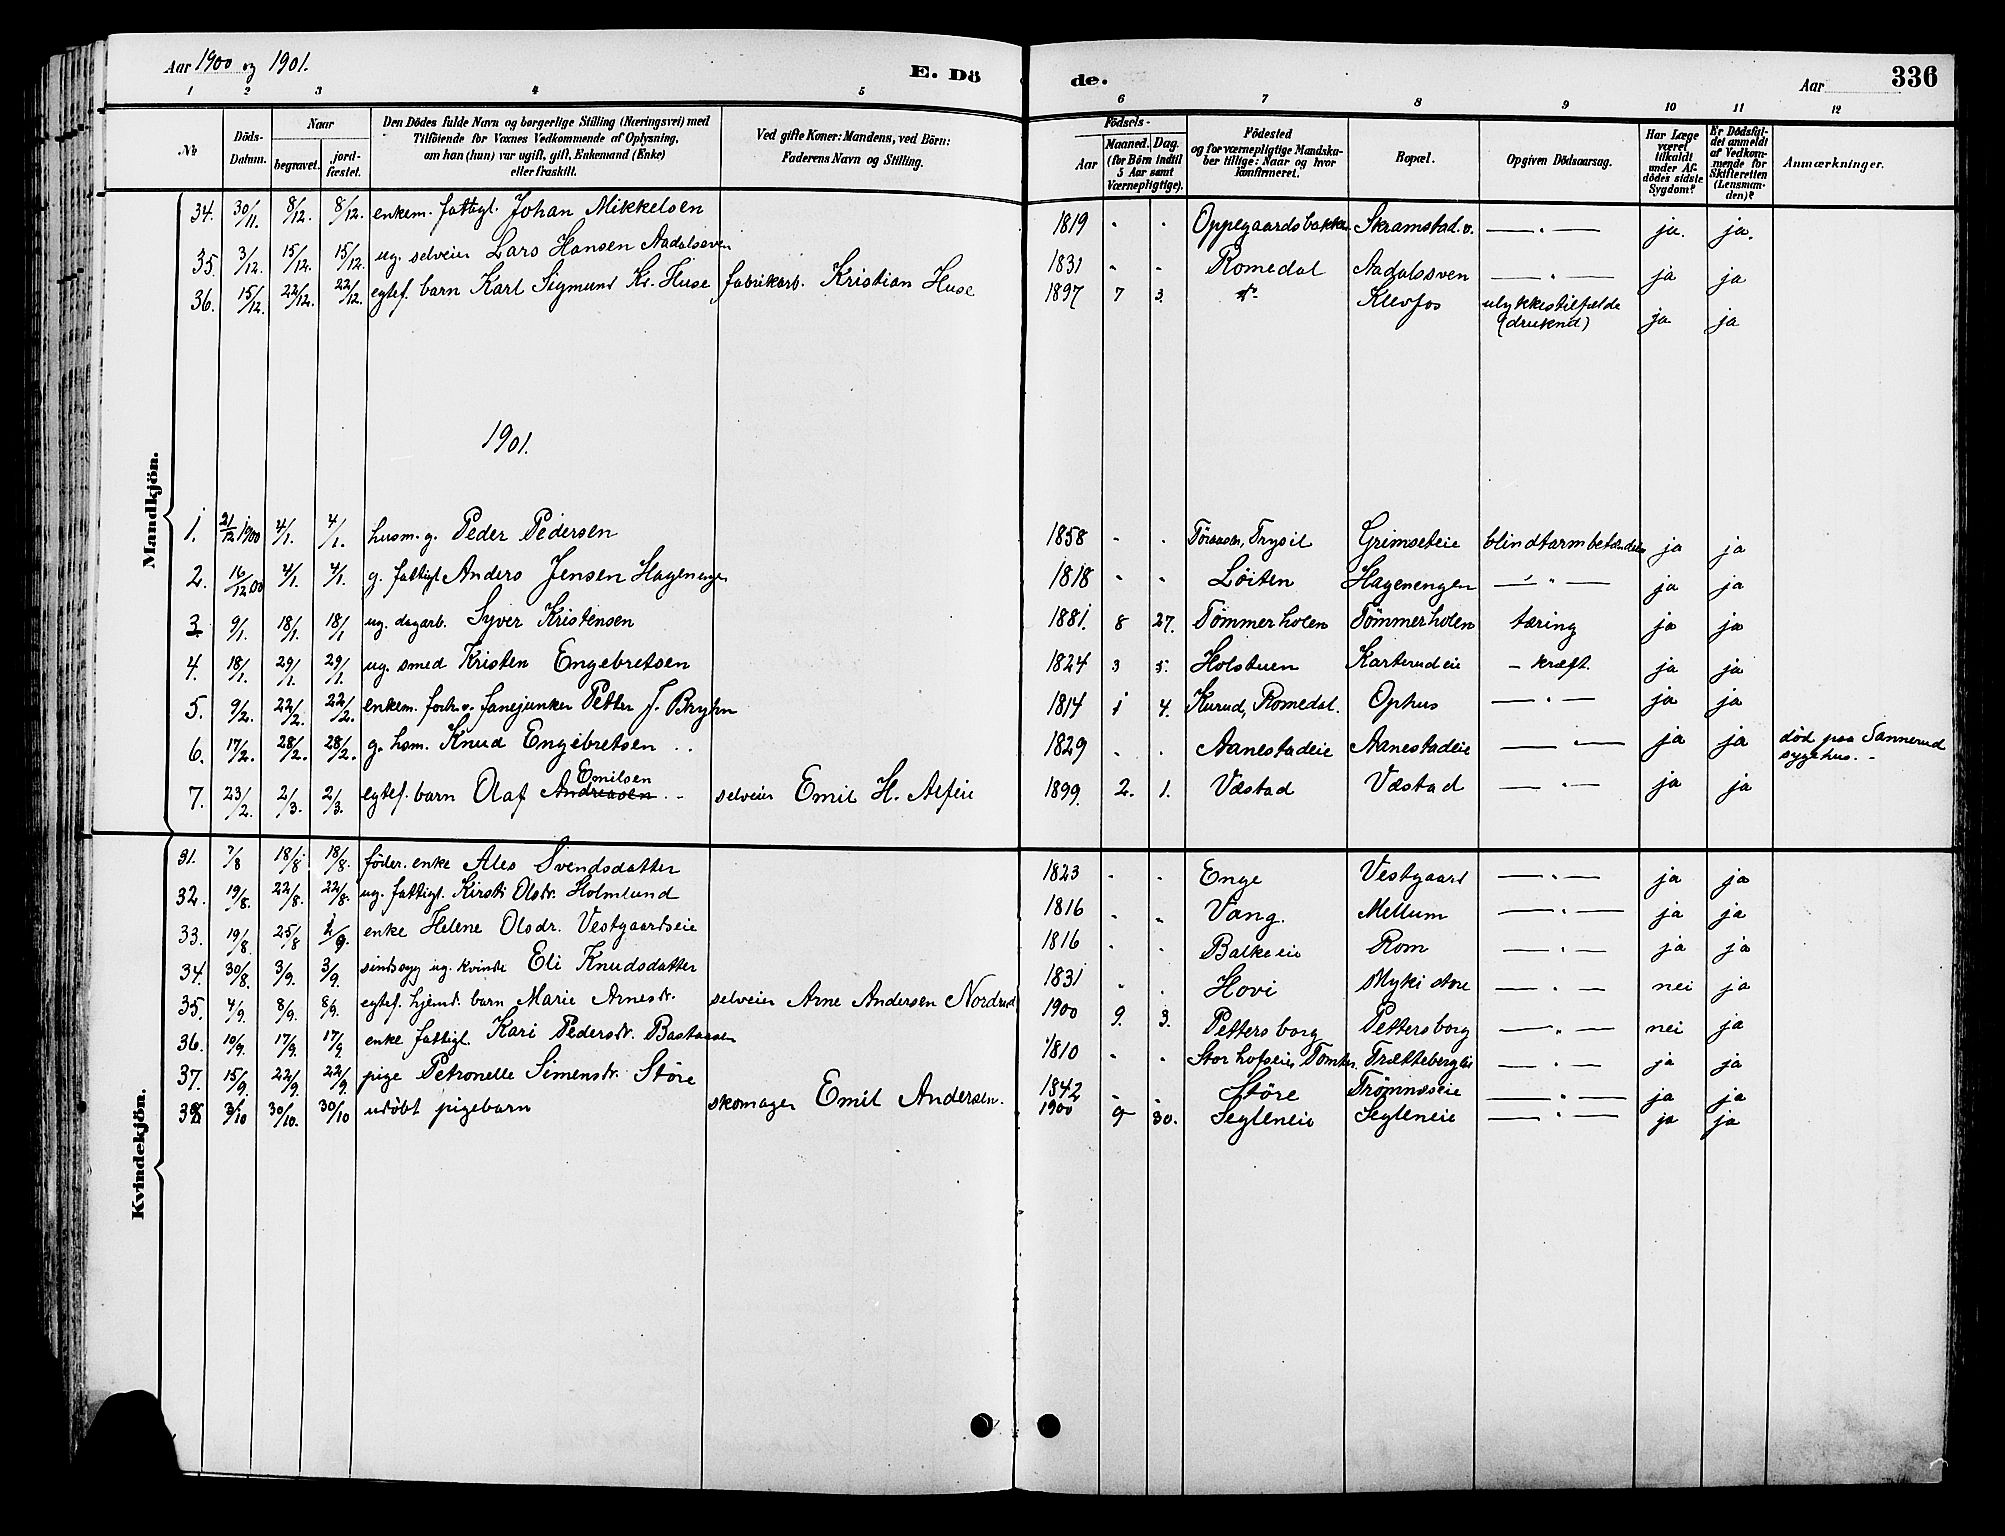 Aar 1900 og 1901.
E. Dö
de.
Aar
336
1 2 3 4 5 6 7 8 9 10 11 12
№
Döds-Datum.
Naar
begravet.
jord-fæstet.
Den Dödes fulde Navn og borgerlige Stilling (Næringsvei) med
Tilföiende for Voxnes Vedkommende af Oplysning,
om han (hun) var ugift, gift, Enkemand (Enke)
eller fraskilt.
Ved gifte Koner: Mandens, ved Börn:
Faderens Navn og Stilling.
Födsels-
Aar
Maaned. Dag.
(for Börn indtil
5 Aar samt
Værnepligtige).
Födested
og for værnepligtige Mandska-
ber tillige: Naar og hvor
konfirmeret.
Bopæl.
Opgiven Dödsaarsag.
Har Læge
været
tilkaldt
under Af-
dödes sidste
Sygdom?
Er Dödsfal-
det anmeldt
af Vedkom-
mende for
Skifteretten
(Lensman-
den)?
Anmærkninger.
Mandkjön.
34. 30/11. 8/12. 8/12. enkem. fattigl. Johan Mikkelsen 1819 " " Oppegaardsbakken Skramstad.v. — " — ja. ja.
35. 3/12. 15/12. 15/12. ug. selveier Lars Hansen Aadalssven 1831 " " Romedal Aadalssven — " — ja ja
36. 15/12. 22/12. 22/12. egtef. barn Karl Sigmund Kr. Huse fabrikarb. Kristian Huse 1897 7 3. Klevfos ulykkestilfælde (druknd) ja ja
1901.
1. 21/12 1900 4/1. 4/1. husm. g. Peder Pedersen 1858 " " Töraasen, Trysil Grimseteie blindtarmbetændels ja ja
2. 16/12 00 4/1. 4/1. g. fattigl Anders Jensen Hagenengen 1818 " " Löiten Hagenengen — " — ja ja
3 9/1. 18/1. 18/1 ug. dagarb. Syver Kristensen 1881. 8 27. Tömmerholen Tömmerholen tæring ja ja
4. 18/1. 29/1. 29/1. ug. smed Kristen Engebretsen 1824 3 5. Holstuen Karterudeie - kræft. ja ja
5. 9/2. 22/2. 22/2. enkem. forh.v. fanejunker Petter J. Bryhn 1814 1 4. Kurud, Romedal. Ophus — " — ja ja
6. 17/2. 28/2. 28/2. g. hsm. Knud Engebretsen 1829 " " Aanestadeie Aanestadeie — " — ja ja död paa Sannerud sygehus.
7. 23/2. 2/3. 2/3. egtef. barn Olaf Andreasen Emilsen selveier Emil H. Alfeie 1899. 2. 1. Væstad Væstad — " — ja ja
Kvindekjön.
31. 7/8 18/8 18/8. föder. enke Ales Svendsdatter 1823 " " Enge Vestgaard — " — ja ja
32. 19/8. 22/8. 22/8. ug. fattigl. Kirsti Olsdr. Holmlund 1816 " " Vang. Mellum — " — ja ja
33. 19/8. 25/8 1/9. enke Helene Olsdr. Vestgaardseie 1816 " " Balkeeie Rom — " — ja ja
34. 30/8. 3/9. 3/9. sindssyg ug. kvinde Eli Knudsdatter 1831 " " Hovi Myki store — " — nei ja
35. 4/9. 8/9 8/9. egtef. hjemd. barn Marie Arnesdr. selveier Arne Andersen Nordrud 1900 9. 3. Pettersborg Pettersborg — " — nei ja
36. 10/9. 17/9. 17/9 enke fattigl. Kari Pedersdr. Bastaasen 1810 " " Stor hofseie, Tomter. Trætteberglie — " — ja ja
37. 15/9. 22/9. 22/9. pige Petronelle Simensdr. Störe 1842 " " Störe Trömnæseie — " — ja ja
38 3/10 30/10. 30/10 udöbt pigebarn skomager Emil Andersen. 1900 9 30. Segleneie Segleneie — " — ja ja